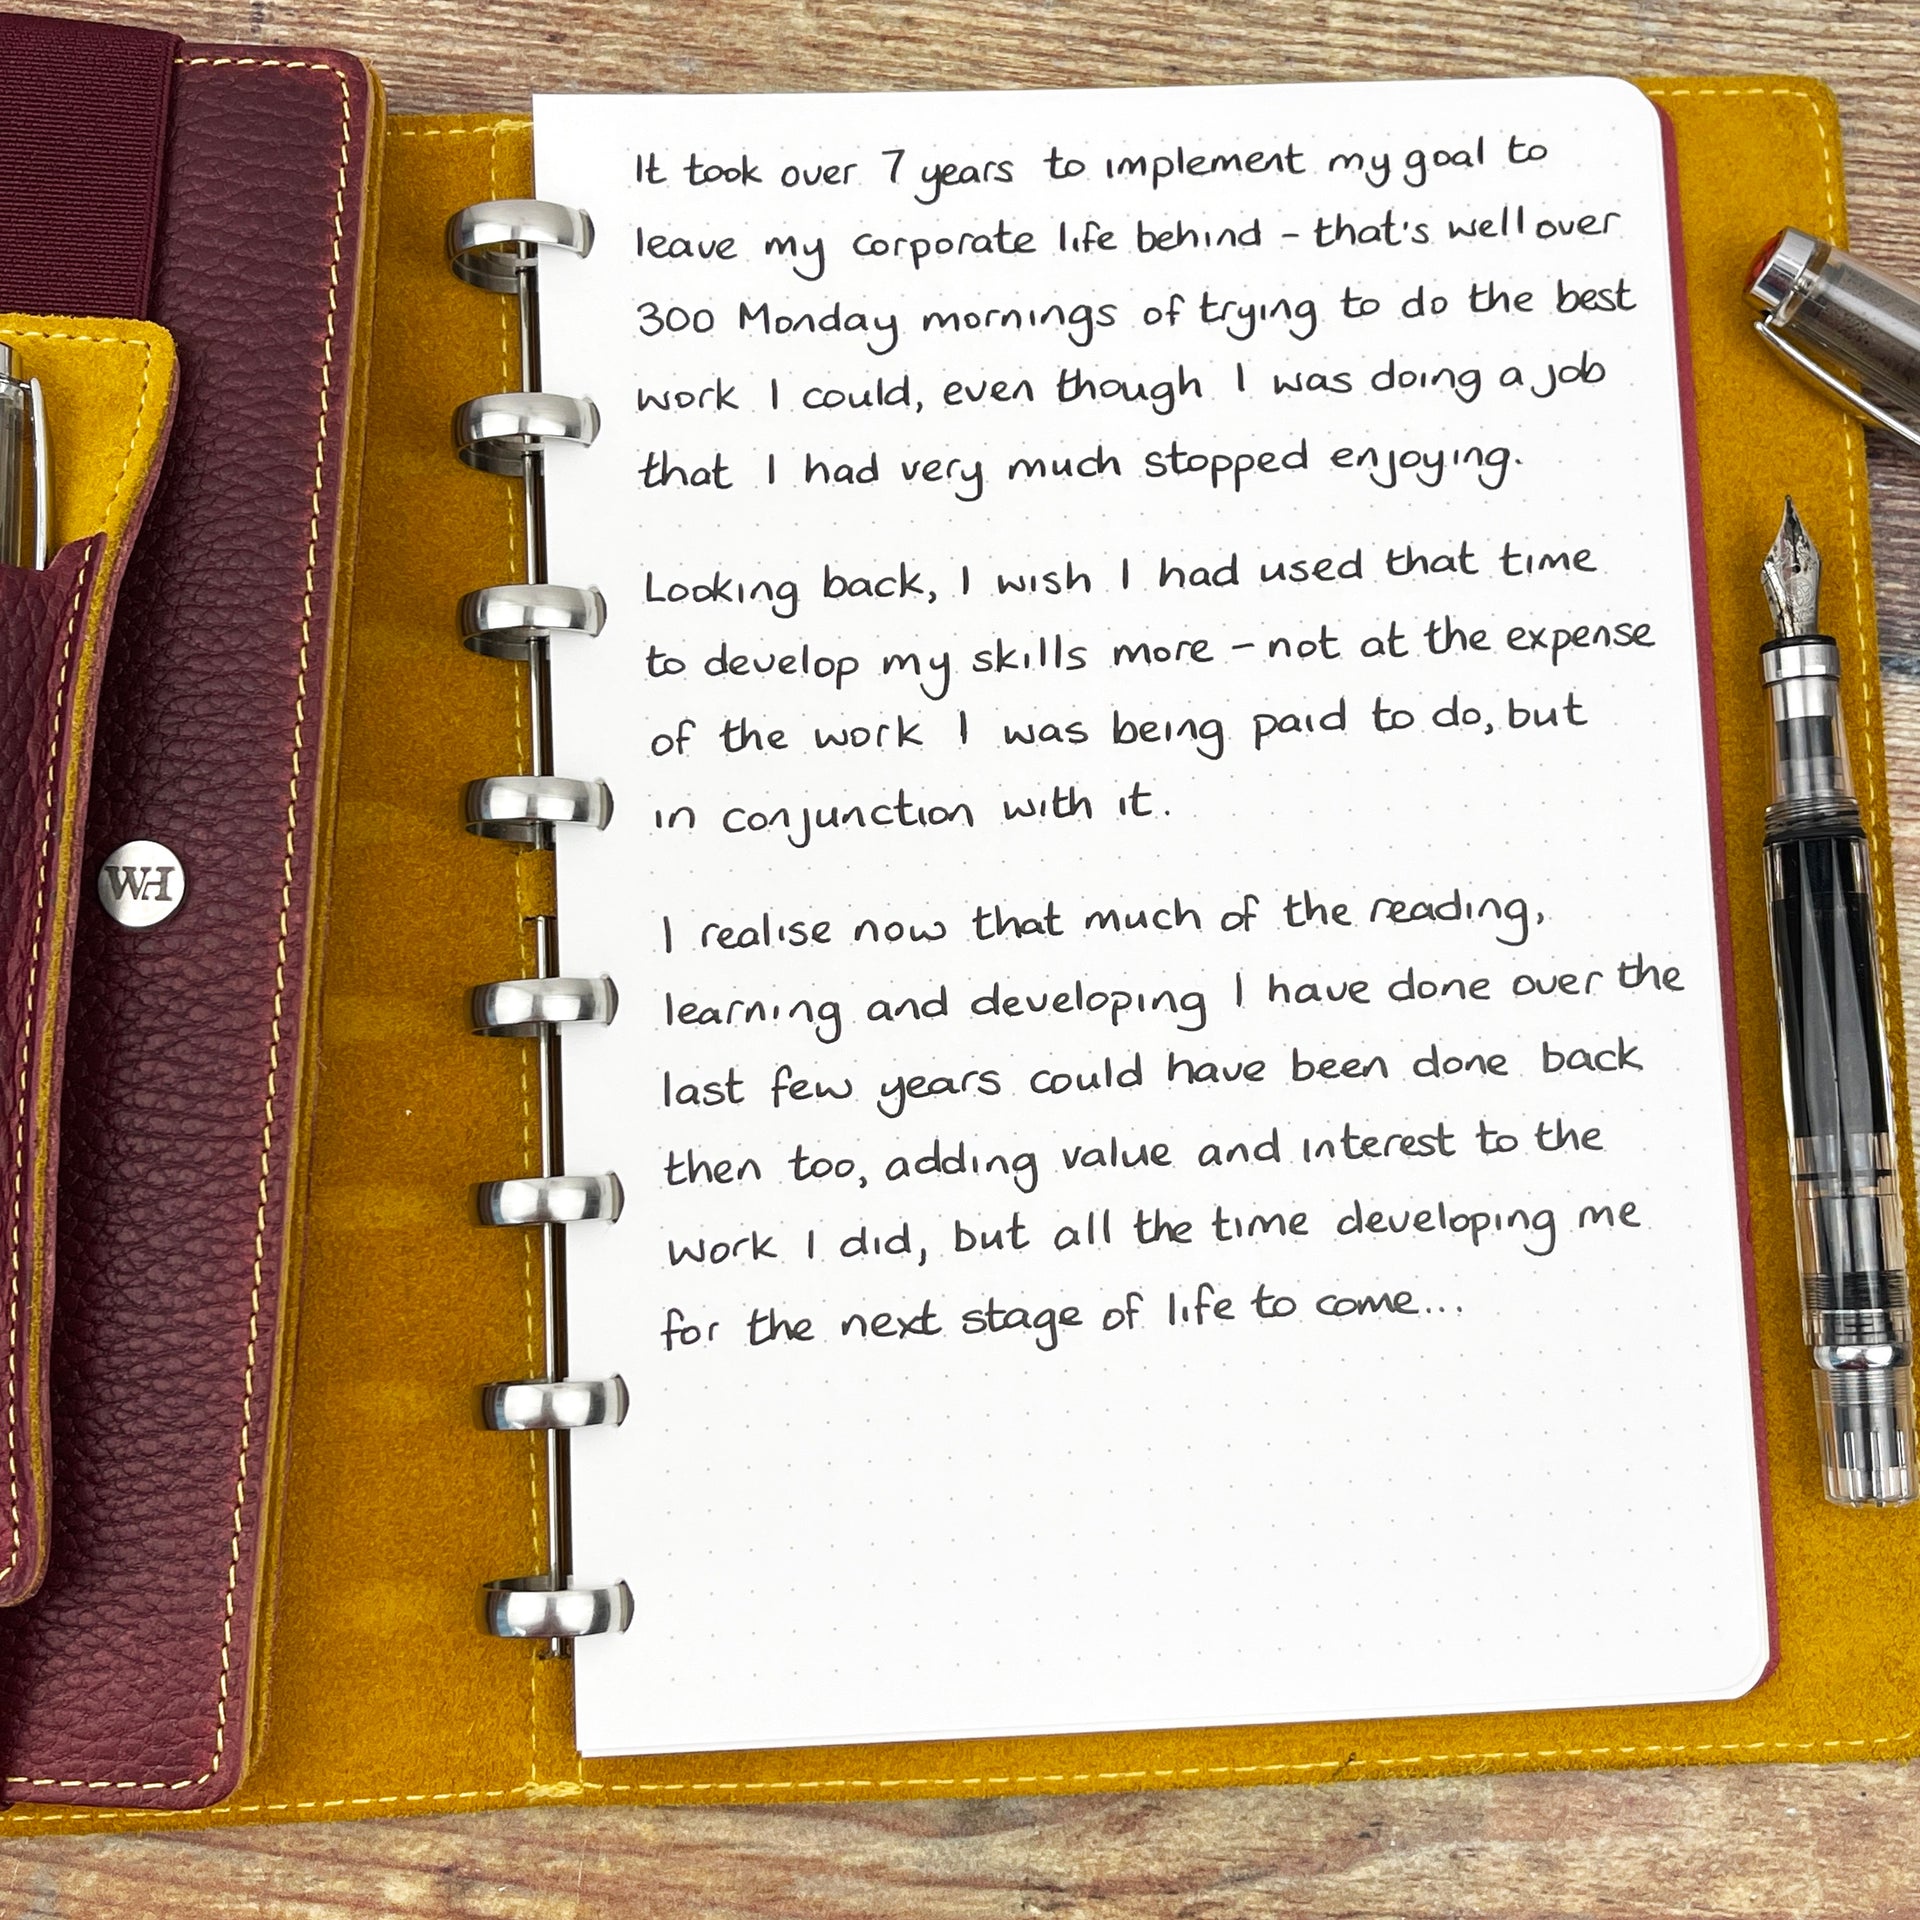 It took over 7 years to implement my goal to
leave my corporate life behind - that's well over
300 Monday mornings of trying to do the best
work I could, even though I was doing a job
that I had very much stopped enjoying.
Looking back, I wish I had used that time
to develop my skills more - not at the expense
of the work I was being paid to do, but
in conjunction with it.
I realise now that much of the reading,
learning and developing I have done over the
last few years could have been done back
then too, adding value and interest to the
work I did, but all the time developing me
for the next stage of life to come...
WH